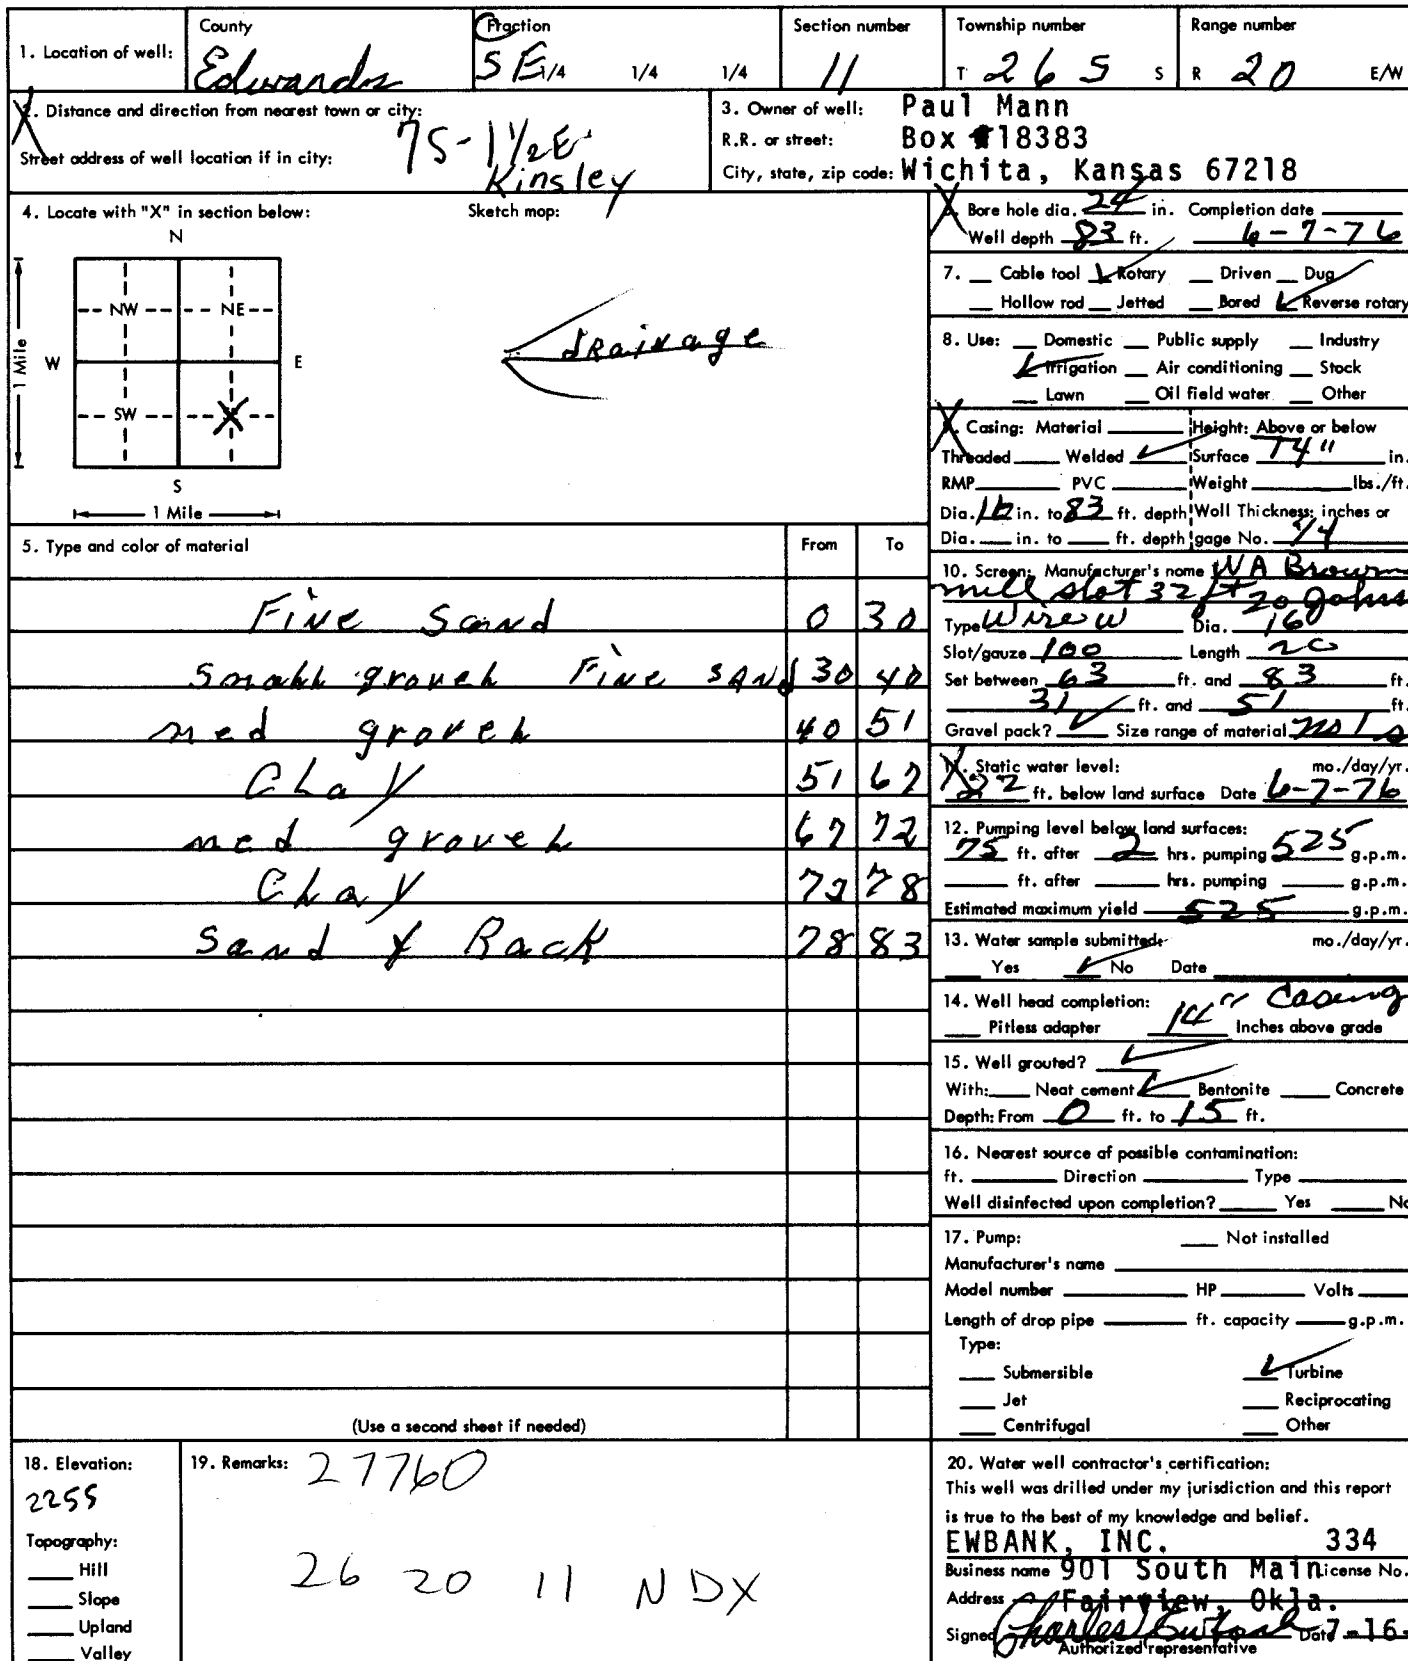 1. Location of well:
County
Edwards
Fraction
SE 1/4 1/4 1/4
Section number
11
Township number
T 26 S S
Range number
R 20 E/W
2. Distance and direction from nearest town or city: 7S-1 1/2 E
Kinsley
Street address of well location if in city:
3. Owner of well: Paul Mann
R.R. or street: Box #18383
City, state, zip code: Wichita, Kansas 67218
4. Locate with "X" in section below:
Sketch map:
N
NW NE
W E
SW
S
1 Mile
1 Mile
drainage
5. Type and color of material From To
Fine Sand 0 30
small gravel Fine sand 30 40
med gravel 40 51
Clay 51 67
med gravel 67 72
Clay 72 78
Sand & Rock 78 83
(Use a second sheet if needed)
6. Bore hole dia. 24 in. Completion date
Well depth 83 ft. 6-7-76
7. Cable tool ✓ Rotary Driven Dug
Hollow rod Jetted Bored ✓ Reverse rotary
8. Use: Domestic Public supply Industry
✓ Irrigation Air conditioning Stock
Lawn Oil field water Other
9. Casing: Material Height: Above or below
Threaded Welded ✓ Surface 14" in.
RMP PVC Weight lbs./ft.
Dia. 16 in. to 83 ft. depth Wall Thickness: inches or
Dia. in. to ft. depth gage No. 1/4
10. Screen: Manufacturer's name WA Brown
mill slot 32 ft 20 Johns
Type Wire w Dia. 16
Slot/gauze 100 Length 20
Set between 63 ft. and 83 ft.
31 ft. and 51 ft.
Gravel pack? ✓ Size range of material no 1
11. Static water level: mo./day/yr.
22 ft. below land surface Date 6-7-76
12. Pumping level below land surfaces:
75 ft. after 2 hrs. pumping 525 g.p.m.
ft. after hrs. pumping g.p.m.
Estimated maximum yield 525 g.p.m.
13. Water sample submitted: mo./day/yr.
Yes ✓ No Date
14. Well head completion:
Pitless adapter 14" casing Inches above grade
15. Well grouted? ✓
With: Neat cement ✓ Bentonite Concrete
Depth: From 0 ft. to 15 ft.
16. Nearest source of possible contamination:
ft. Direction Type
Well disinfected upon completion? Yes No
17. Pump: Not installed
Manufacturer's name
Model number HP Volts
Length of drop pipe ft. capacity g.p.m.
Type:
Submersible ✓ Turbine
Jet Reciprocating
Centrifugal Other
18. Elevation:
2255
Topography:
Hill
Slope
Upland
Valley
19. Remarks: 27760
26 20 11 NDX
20. Water well contractor's certification:
This well was drilled under my jurisdiction and this report
is true to the best of my knowledge and belief.
EWBANK, INC. 334
Business name 901 South Main icense No.
Address Fairview, Okla.
Signed Charles Ewbank Date 7-16-
Authorized representative